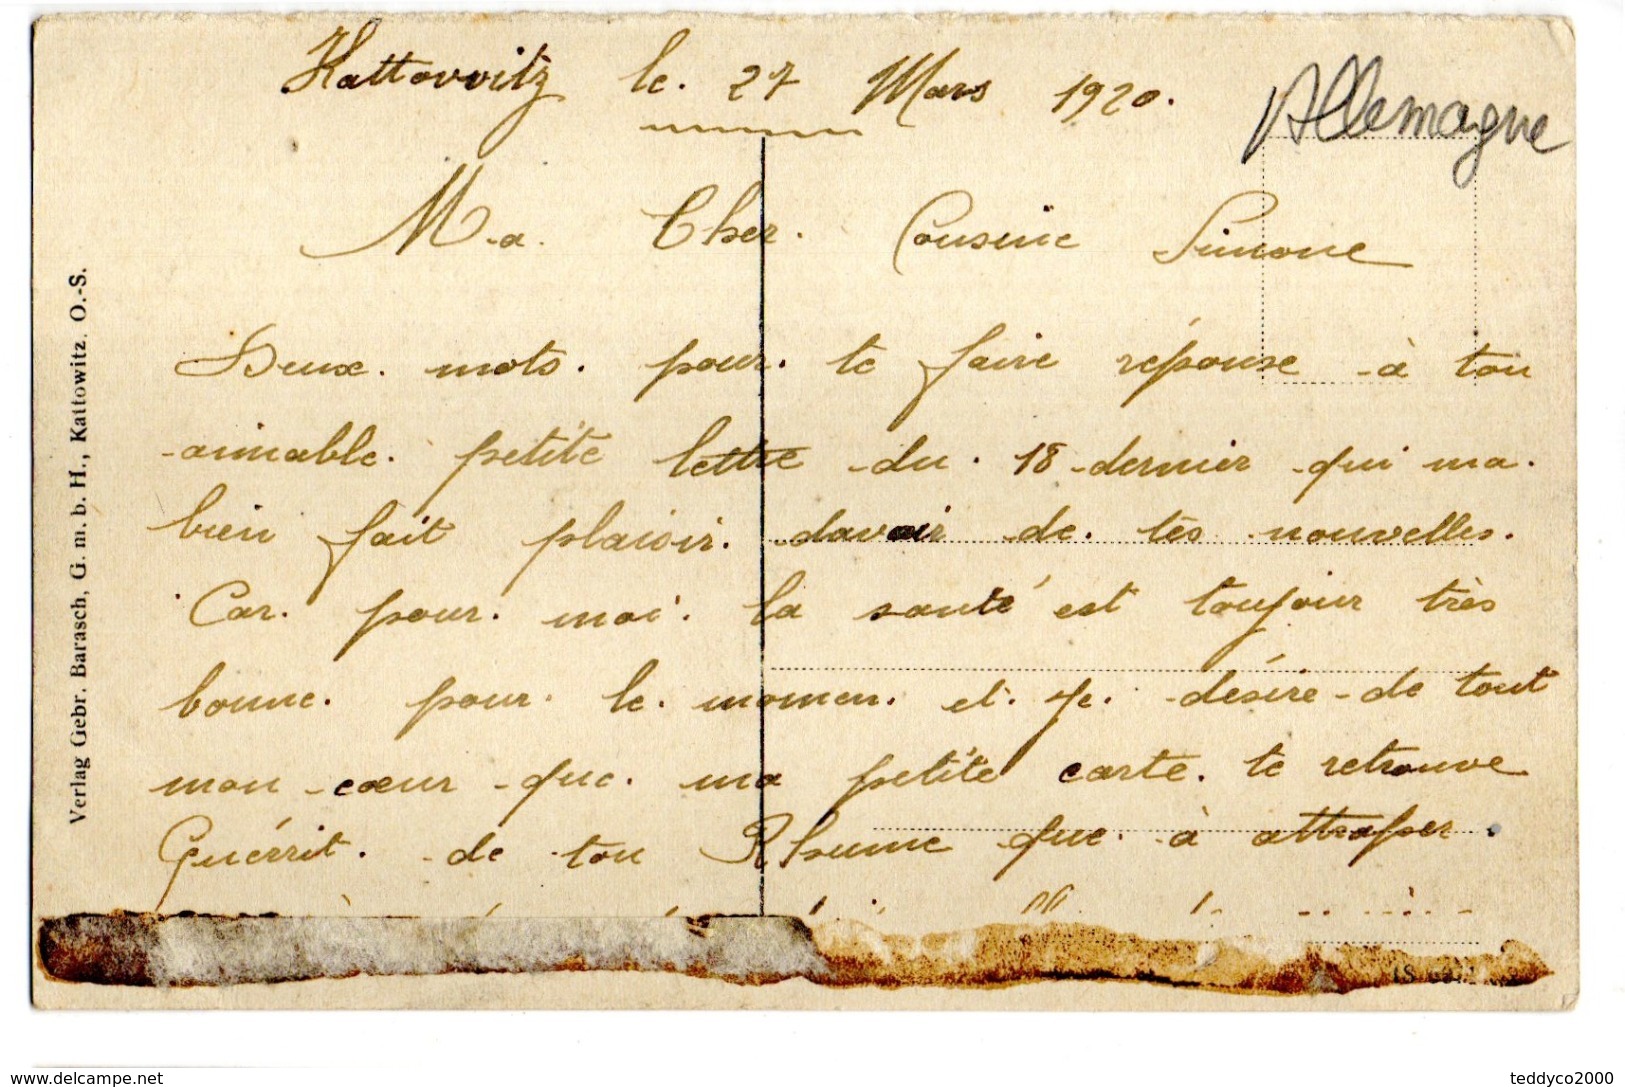 Kattowitz le. 27 Mars 1920.
Allemagne
Ma Cher. Cousine Simone
Deux. mots. pour. te faire réponse à ton
aimable. petite lettre du. 18 dernier qui ma.
bien fait plaisir. davoir de. tes nouvelles.
Car. pour. moi. la santé est toujour très
bonne. pour. le. momen. et. je. désire de tout
mon cœur que. ma petite carte. te retrouve
Guérrit. de ton Rhume que. à attrapper.
Verlag Gebr. Barasch, G. m. b. H., Kattowitz. O.-S.
www.delcampe.net
teddyco2000